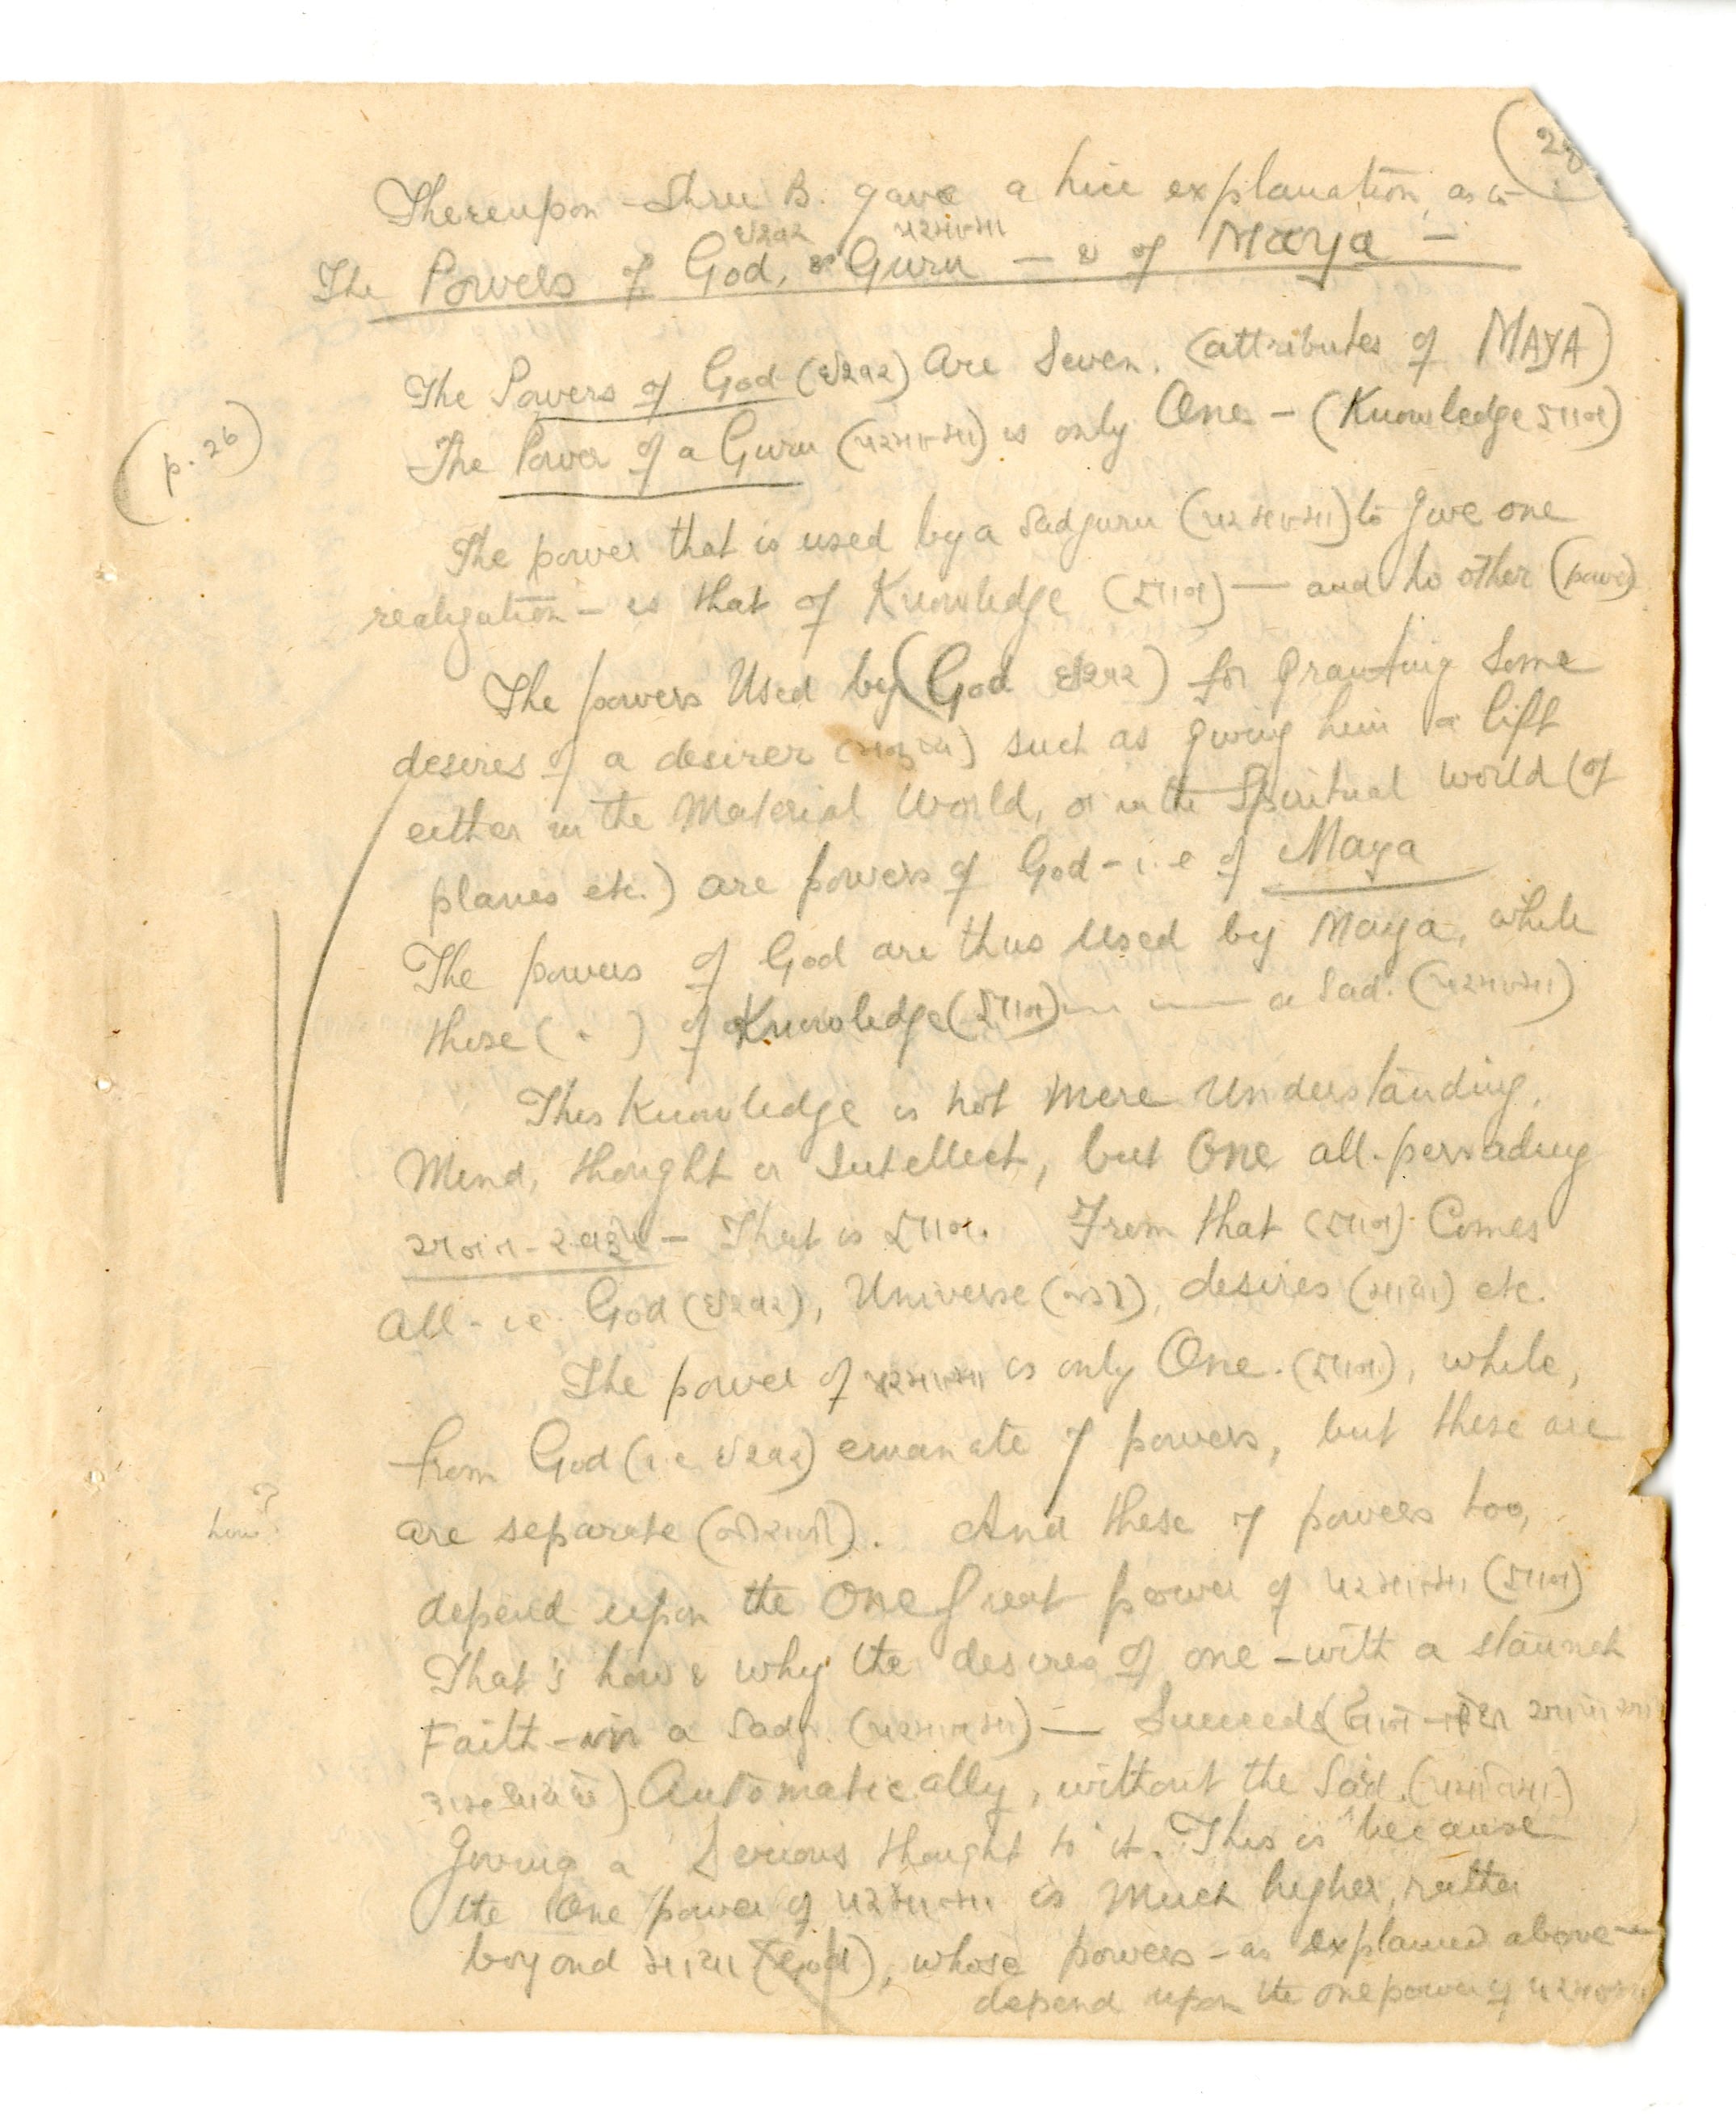 (28
Thereupon Shree B. gave a nice explanation, as to
ઈશ્વર પરમાત્મા
The Powers of God, & Guru — & of Maya —
The Powers of God (ઈશ્વર) are Seven. (attributes of MAYA)
(p. 26)
The Power of a Guru (પરમાત્મા) is only One — (Knowledge જ્ઞાન)
The power that is used by a Sadguru (પરમાત્મા) to give one
realization — is that of Knowledge (જ્ઞાન) — and no other (power)
The powers Used by (God ઈશ્વર) for granting Some
desires of a desirer such as giving him a lift
either in the Material World, or in the Spiritual world (of
planes etc.) are powers of God — i.e of Maya
The powers of God are thus used by Maya, while
those ( " ) of Knowledge (જ્ઞાન) — — a Sad. (પરમાત્મા)
This Knowledge is not mere Understanding,
Mind, thought or Intellect, but One all-pervading
— That is જ્ઞાન. From that (જ્ઞાન) Comes
all - i.e. God (ઈશ્વર), Universe, desires (માયા) etc.
The power of પરમાત્મા is only One. (જ્ઞાન), while,
from God (i.e ઈશ્વર) emanate 7 powers, but these are
how?
are separate. And these 7 powers too,
depend upon the One great power of પરમાત્મા (જ્ઞાન)
That's how & why the desires of one — with a staunch
Faith — in a Sadg. (પરમાત્મા) — Succeeds
Automatically, without the Sad. (પરમાત્મા)
giving a Serious thought to it. This is because
the One power of પરમાત્મા is much higher, rather
beyond માયા (God), whose powers — as explained above —
depend upon the one power of પરમાત્મા